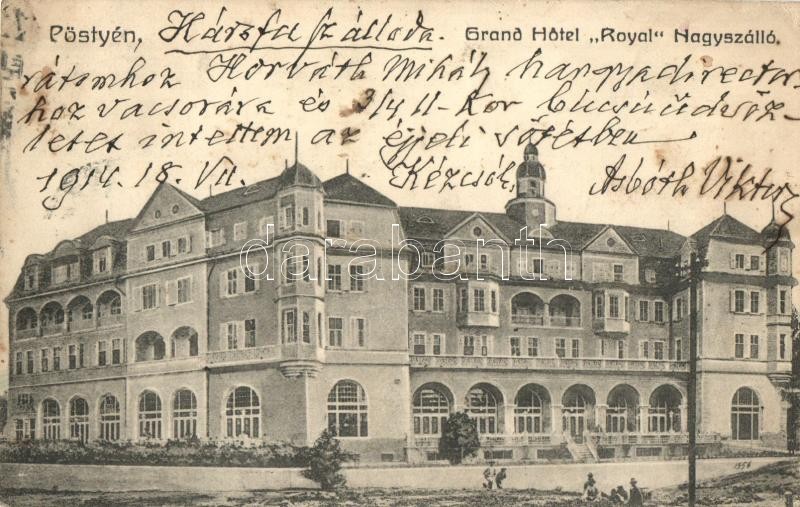 Pöstyén, Hársfa szálloda. Grand Hôtel „Royal“ Nagyszálló.
rátomhoz Horváth Mihály hangyadirector-
hoz vacsorára és 3/4 11-kor búcsúüdvöz-
letet intettem az éjjeli sötétben
1914. 18. VII. Kézcsók, Asbóth Viktor
darabanth
1956